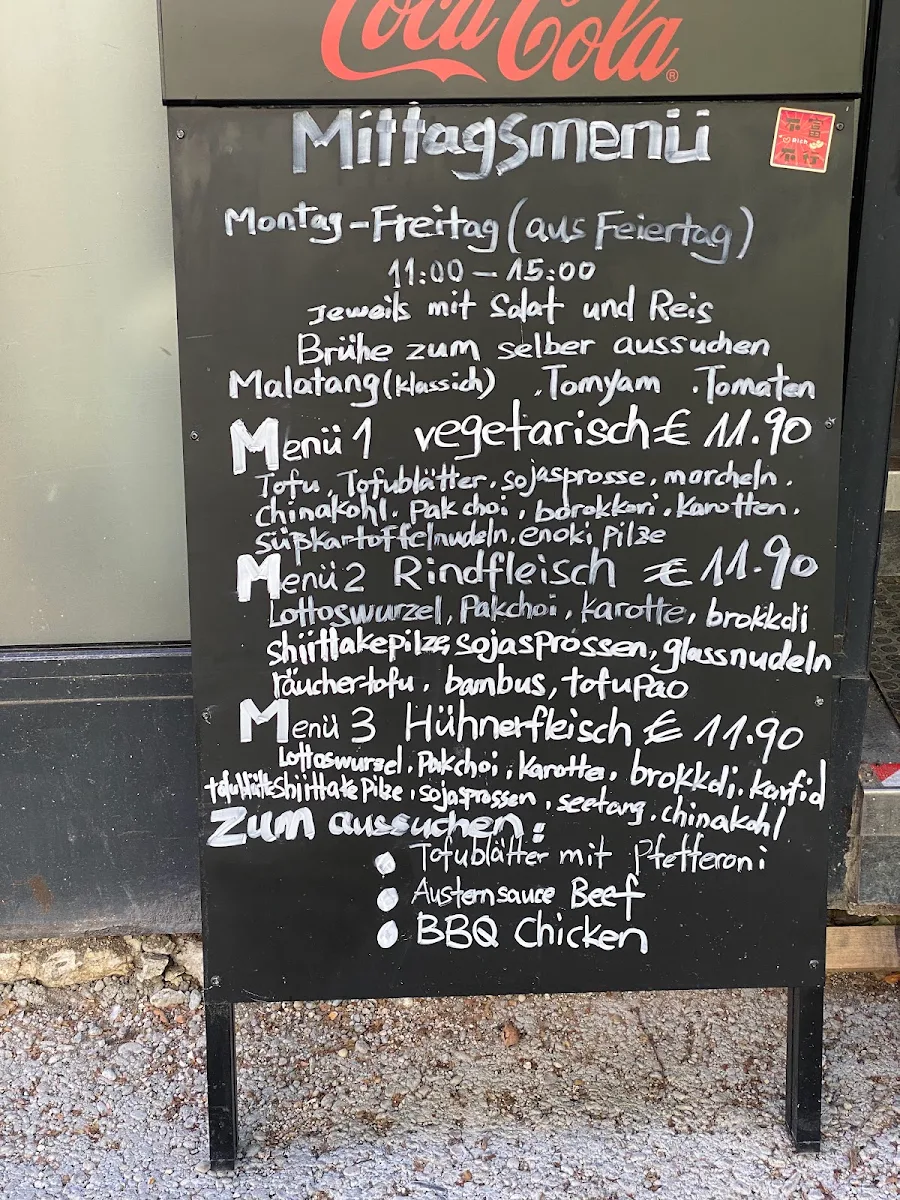 Coca-Cola®
Mittagsmenü
Montag-Freitag (aus Feiertag)
11:00 - 15:00
Jeweils mit Salat und Reis
Brühe zum selber aussuchen
Malatang (klassich) . Tomyam . Tomaten
Menü 1 vegetarisch € 11.90
Tofu, Tofublätter, sojasprosse, morcheln.
chinakohl. Pakchoi, borokkori, karotten.
süßkartoffelnudeln, enoki pilze
Menü 2 Rindfleisch € 11.90
Lottoswurzel, Pakchoi, karotte, brokkoli
shiittakepilze, sojasprossen, glassnudeln
räuchertofu, bambus, tofupao
Menü 3 Hühnerfleisch € 11.90
Lottoswurzel, Pakchoi, karotte, brokkoli, karfiol
tofublätte shiittake pilze, sojasprossen, seetang, chinakohl
Zum aussuchen:
Tofublätter mit Pfefferoni
Austernsauce Beef
BBQ Chicken